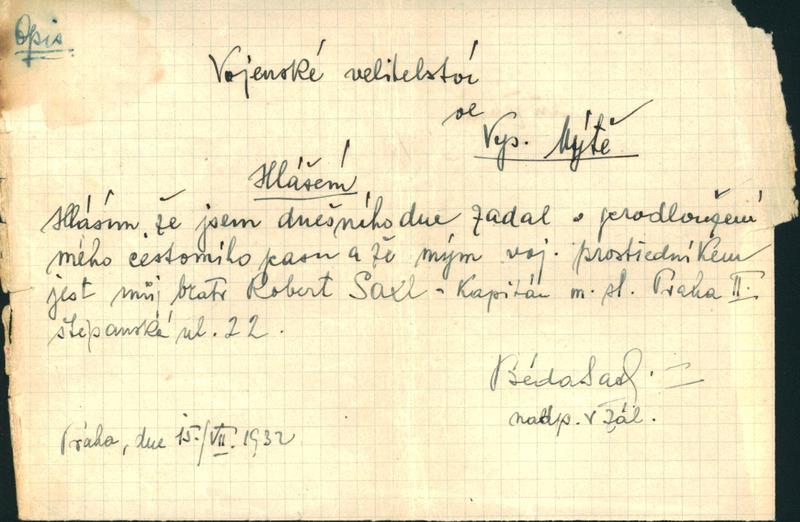 Opis
Vojenské velitelství
ve
Vys. Mýtě
Hlášení
Hlásím, že jsem dnešního dne žádal o prodloužení
mého cestovního pasu a že mým voj. prostředníkem
jest můj bratr Robert Saxl - Kapitán m. sl. Praha II.
štěpanská ul. 22.
Béda Saxl.
nadp. v zál.
Praha, dne 15./VII. 1932